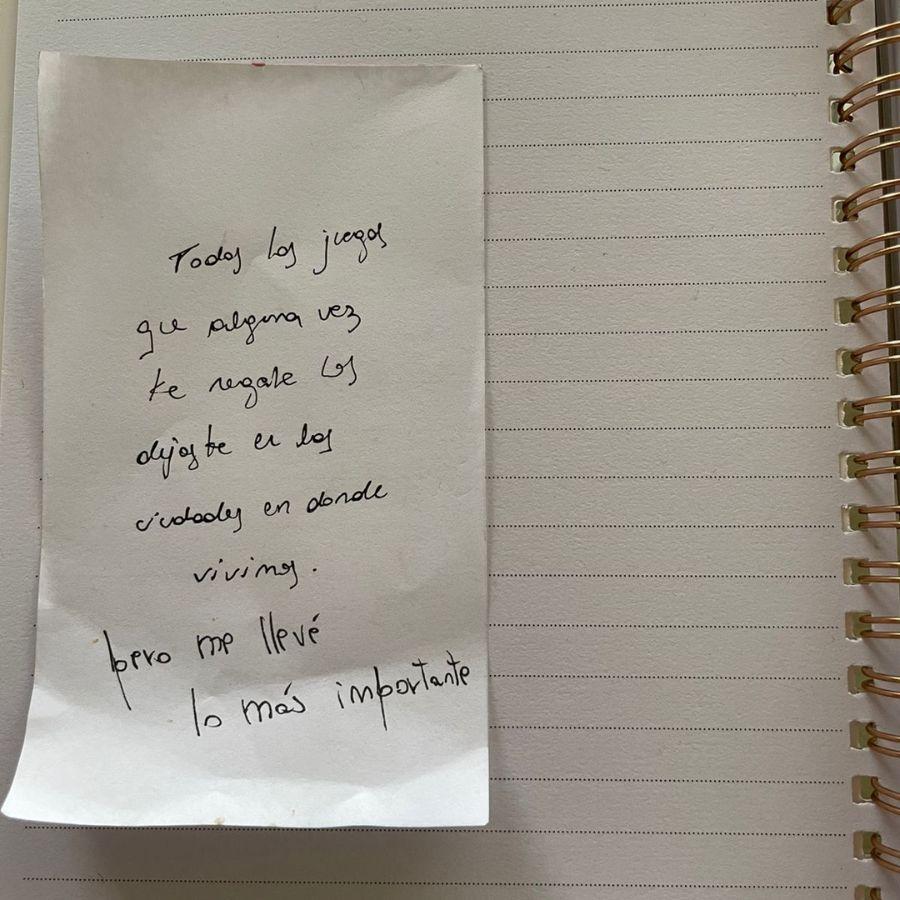 Todos los juegos
que alguna vez
te regale los
dejaste en las
ciudades en donde
vivimos.
pero me llevé
lo más importante